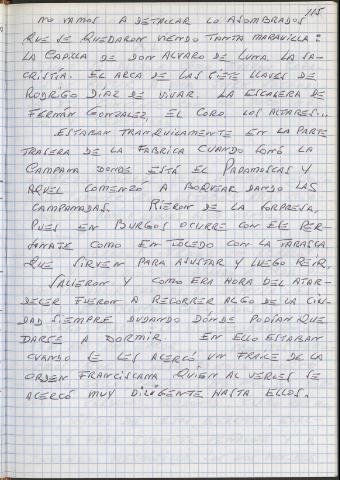 115
NO VAMOS A DETALLAR LO ASOMBRADOS
QUE SE QUEDARON VIENDO TANTA MARAVILLA:
LA CAPILLA DE DON ALVARO DE LUNA, LA SA-
CRISTÍA. EL ARCA DE LAS SIETE LLAVES DE
RODRIGO DIAZ DE VIVAR. LA ESCALERA DE
FERNÁN GONZALEZ, EL CORO, LOS ALTARES...
ESTABAN TRANQUILAMENTE EN LA PARTE
TRASERA DE LA FABRICA CUANDO SONÓ LA
CAMPANA DONDE ESTÁ EL PAPAMOSCAS Y
AQUEL COMENZÓ A BOQUEAR DANDO LAS
CAMPANADAS. RIERON DE LA SORPRESA,
PUES EN BURGOS OCURRE CON ESE PER-
SONAJE COMO EN TOLEDO CON LA TARASCA
QUE SIRVEN PARA ASUSTAR Y LUEGO REIR.
SALIERON Y COMO ERA HORA DEL ATAR-
DECER FUERON A RECORRER ALGO DE LA CIU-
DAD SIEMPRE DUDANDO DÓNDE PODÍAN QUE
DARSE A DORMIR. EN ELLO ESTABAN
CUANDO SE LES ACERCÓ UN FRAILE DE LA
ORDEN FRANCISCANA QUIÉN AL VERLES SE
ACERCÓ MUY DILIGENTE HASTA ELLOS.